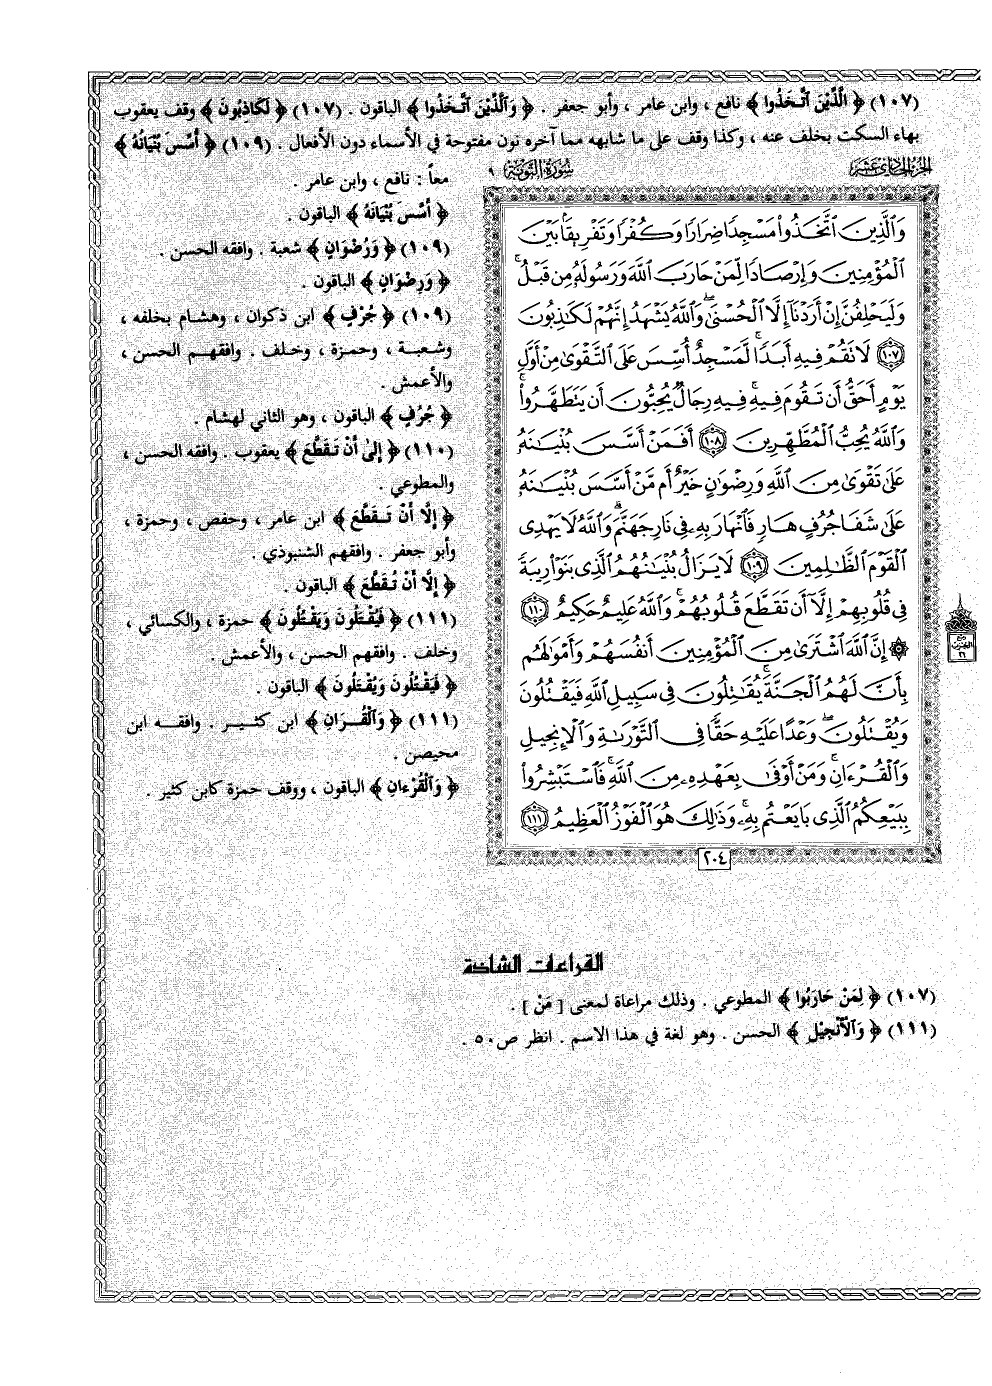 (١٠٧) ﴿ الَّذِينَ اتَّخَذُوا ﴾ نافع ، وابن عامر ، وأبو جعفر . ﴿ وَالَّذِينَ اتَّخَذُوا ﴾ الباقون . (١٠٧) ﴿ لَكَاذِبُونَ ﴾ وقف يعقوب
بهاء السكت بخلف عنه ، وكذا وقف على ما شابهه مما آخره نون مفتوحة في الأسماء دون الأفعال . (١٠٩) ﴿ أُسِّسَ بُنْيَانُهُ ﴾
الجزء الحادي عشر
سورة التوبة ٩
معاً : نافع ، وابن عامر .
﴿ أَسَّسَ بُنْيَانَهُ ﴾ الباقون .
(١٠٩) ﴿ وَرُضْوَانٍ ﴾ شعبة . وافقه الحسن .
﴿ وَرِضْوَانٍ ﴾ الباقون .
(١٠٩) ﴿ جُرْفٍ ﴾ ابن ذكوان ، وهشام بخلفه ،
وشعبة ، وحمزة ، وخلف . وافقهم الحسن ،
والأعمش .
﴿ جُرُفٍ ﴾ الباقون ، وهو الثاني لهشام .
(١١٠) ﴿ إِلَىٰ أَنْ تَقَطَّعَ ﴾ يعقوب . وافقه الحسن ،
والمطوعي .
﴿ إِلَّا أَنْ تَقَطَّعَ ﴾ ابن عامر ، وحفص ، وحمزة ،
وأبو جعفر . وافقهم الشنبوذي .
﴿ إِلَّا أَنْ تُقَطَّعَ ﴾ الباقون .
(١١١) ﴿ فَيُقْتَلُونَ وَيَقْتُلُونَ ﴾ حمزة ، والكسائي ،
وخلف . وافقهم الحسن ، والأعمش .
﴿ فَيَقْتُلُونَ وَيُقْتَلُونَ ﴾ الباقون .
(١١١) ﴿ وَالْقُرَانِ ﴾ ابن كثير . وافقه ابن
محيصن .
﴿ وَالْقُرْءَانِ ﴾ الباقون ، ووقف حمزة كابن كثير .
وَٱلَّذِينَ ٱتَّخَذُوا۟ مَسْجِدًا ضِرَارًا وَكُفْرًا وَتَفْرِيقًۢا بَيْنَ
ٱلْمُؤْمِنِينَ وَإِرْصَادًا لِّمَنْ حَارَبَ ٱللَّهَ وَرَسُولَهُۥ مِن قَبْلُ ۚ
وَلَيَحْلِفُنَّ إِنْ أَرَدْنَآ إِلَّا ٱلْحُسْنَىٰ ۖ وَٱللَّهُ يَشْهَدُ إِنَّهُمْ لَكَـٰذِبُونَ
﴿١٠٧﴾ لَا تَقُمْ فِيهِ أَبَدًا ۚ لَّمَسْجِدٌ أُسِّسَ عَلَى ٱلتَّقْوَىٰ مِنْ أَوَّلِ
يَوْمٍ أَحَقُّ أَن تَقُومَ فِيهِ ۚ فِيهِ رِجَالٌ يُحِبُّونَ أَن يَتَطَهَّرُوا۟ ۚ
وَٱللَّهُ يُحِبُّ ٱلْمُطَّهِّرِينَ ﴿١٠٨﴾ أَفَمَنْ أَسَّسَ بُنْيَـٰنَهُۥ
عَلَىٰ تَقْوَىٰ مِنَ ٱللَّهِ وَرِضْوَٰنٍ خَيْرٌ أَم مَّنْ أَسَّسَ بُنْيَـٰنَهُۥ
عَلَىٰ شَفَا جُرُفٍ هَارٍ فَٱنْهَارَ بِهِۦ فِى نَارِ جَهَنَّمَ ۗ وَٱللَّهُ لَا يَهْدِى
ٱلْقَوْمَ ٱلظَّـٰلِمِينَ ﴿١٠٩﴾ لَا يَزَالُ بُنْيَـٰنُهُمُ ٱلَّذِى بَنَوْا۟ رِيبَةً
فِى قُلُوبِهِمْ إِلَّآ أَن تَقَطَّعَ قُلُوبُهُمْ ۗ وَٱللَّهُ عَلِيمٌ حَكِيمٌ ﴿١١٠﴾
۞ إِنَّ ٱللَّهَ ٱشْتَرَىٰ مِنَ ٱلْمُؤْمِنِينَ أَنفُسَهُمْ وَأَمْوَٰلَهُم
بِأَنَّ لَهُمُ ٱلْجَنَّةَ ۚ يُقَـٰتِلُونَ فِى سَبِيلِ ٱللَّهِ فَيَقْتُلُونَ
وَيُقْتَلُونَ ۖ وَعْدًا عَلَيْهِ حَقًّا فِى ٱلتَّوْرَىٰةِ وَٱلْإِنجِيلِ
وَٱلْقُرْءَانِ ۚ وَمَنْ أَوْفَىٰ بِعَهْدِهِۦ مِنَ ٱللَّهِ ۚ فَٱسْتَبْشِرُوا۟
بِبَيْعِكُمُ ٱلَّذِى بَايَعْتُم بِهِۦ ۚ وَذَٰلِكَ هُوَ ٱلْفَوْزُ ٱلْعَظِيمُ ﴿١١١﴾
٢٠٤
القراءات الشاذة
(١٠٧) ﴿ لِمَنْ حَارَبُوا ﴾ المطوعي . وذلك مراعاة لمعنى [ مَنْ ] .
(١١١) ﴿ وَالْأَنْجِيْلِ ﴾ الحسن . وهو لغة في هذا الاسم . انظر ص ٥٠ .